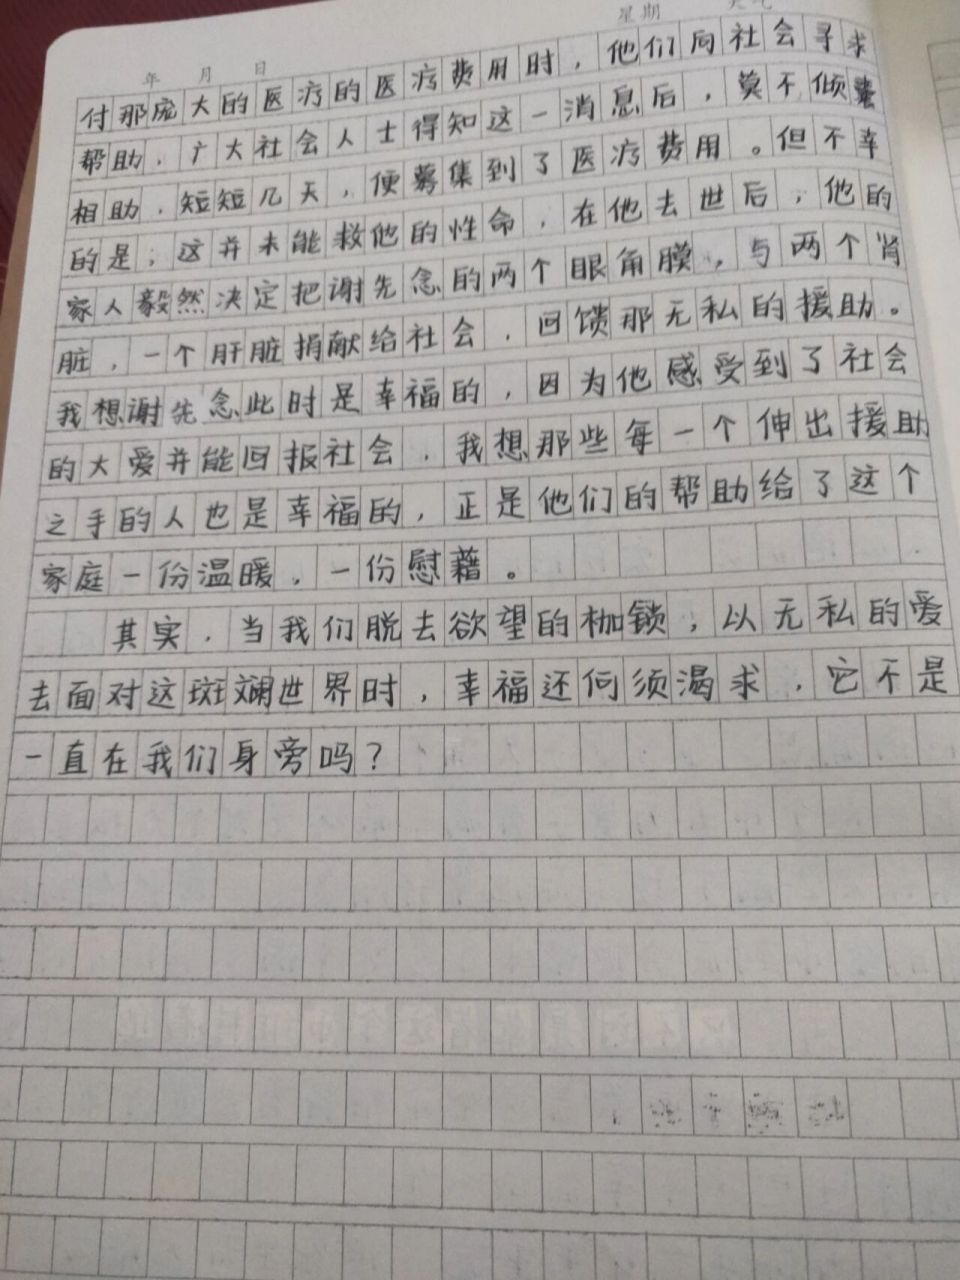 年 月 日 星期 天气
付那庞大的医疗的医疗费用时，他们向社会寻求
帮助，广大社会人士得知这一消息后，莫不倾囊
相助，短短几天，便募集到了医疗费用。但不幸
的是；这并未能救他的性命，在他去世后，他的
家人毅然决定把谢先念的两个眼角膜，与两个肾
脏，一个肝脏捐献给社会，回馈那无私的援助。
我想谢先念此时是幸福的，因为他感受到了社会
的大爱并能回报社会，我想那些每一个伸出援助
之手的人也是幸福的，正是他们的帮助给了这个
家庭一份温暖，一份慰藉。
其实，当我们脱去欲望的枷锁，以无私的爱
去面对这斑斓世界时，幸福还何须渴求，它不是
一直在我们身旁吗？